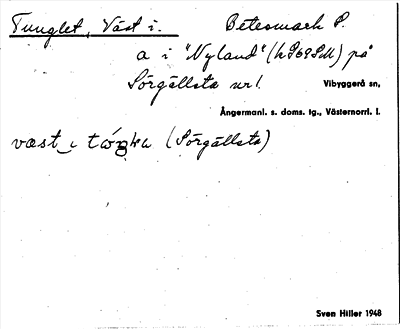 Tunglet, Väst i. Betesmark P.
a i "Nyland" (hS69SM) på
Sörgällsta nr 1. Vibyggerå sn,
Ångermanl. s. doms. tg., Västernorrl. l.
væst i (Sörgällsta)
Sven Hiller 1948